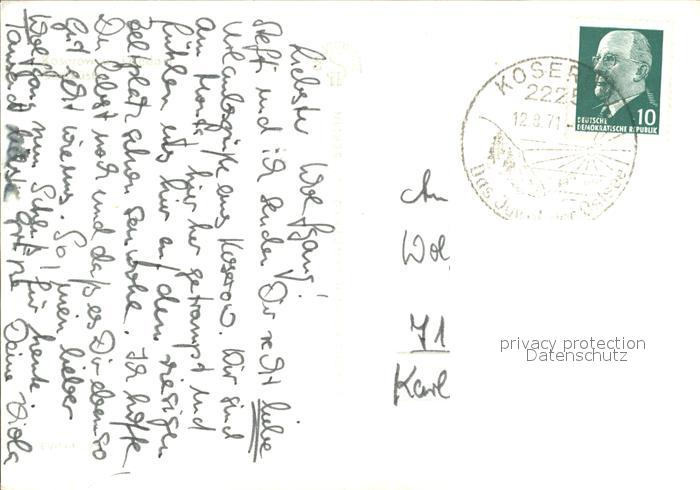 Liebster Wolfgang!
Steff und ich senden Dir recht liebe
Urlaubsgrüße aus Koserow. Wir sind
am Mont. hier her getrampt und
fühlen uns hier auf dem riesigen
Zeltplatz schon sauwohl. Ich hoffe,
Du lebst noch und daß es Dir ebenso
gut geht wie uns. So! mein lieber
Wolfgang nun Schluß für heute
Tausend Grüße Deine Viola
An
Wol
71
Karl
KOSEROW
222
12.8.71
Das Juwel der Ostsee
10
DEUTSCHE
DEMOKRATISCHE REPUBLIK
privacy protection
Datenschutz